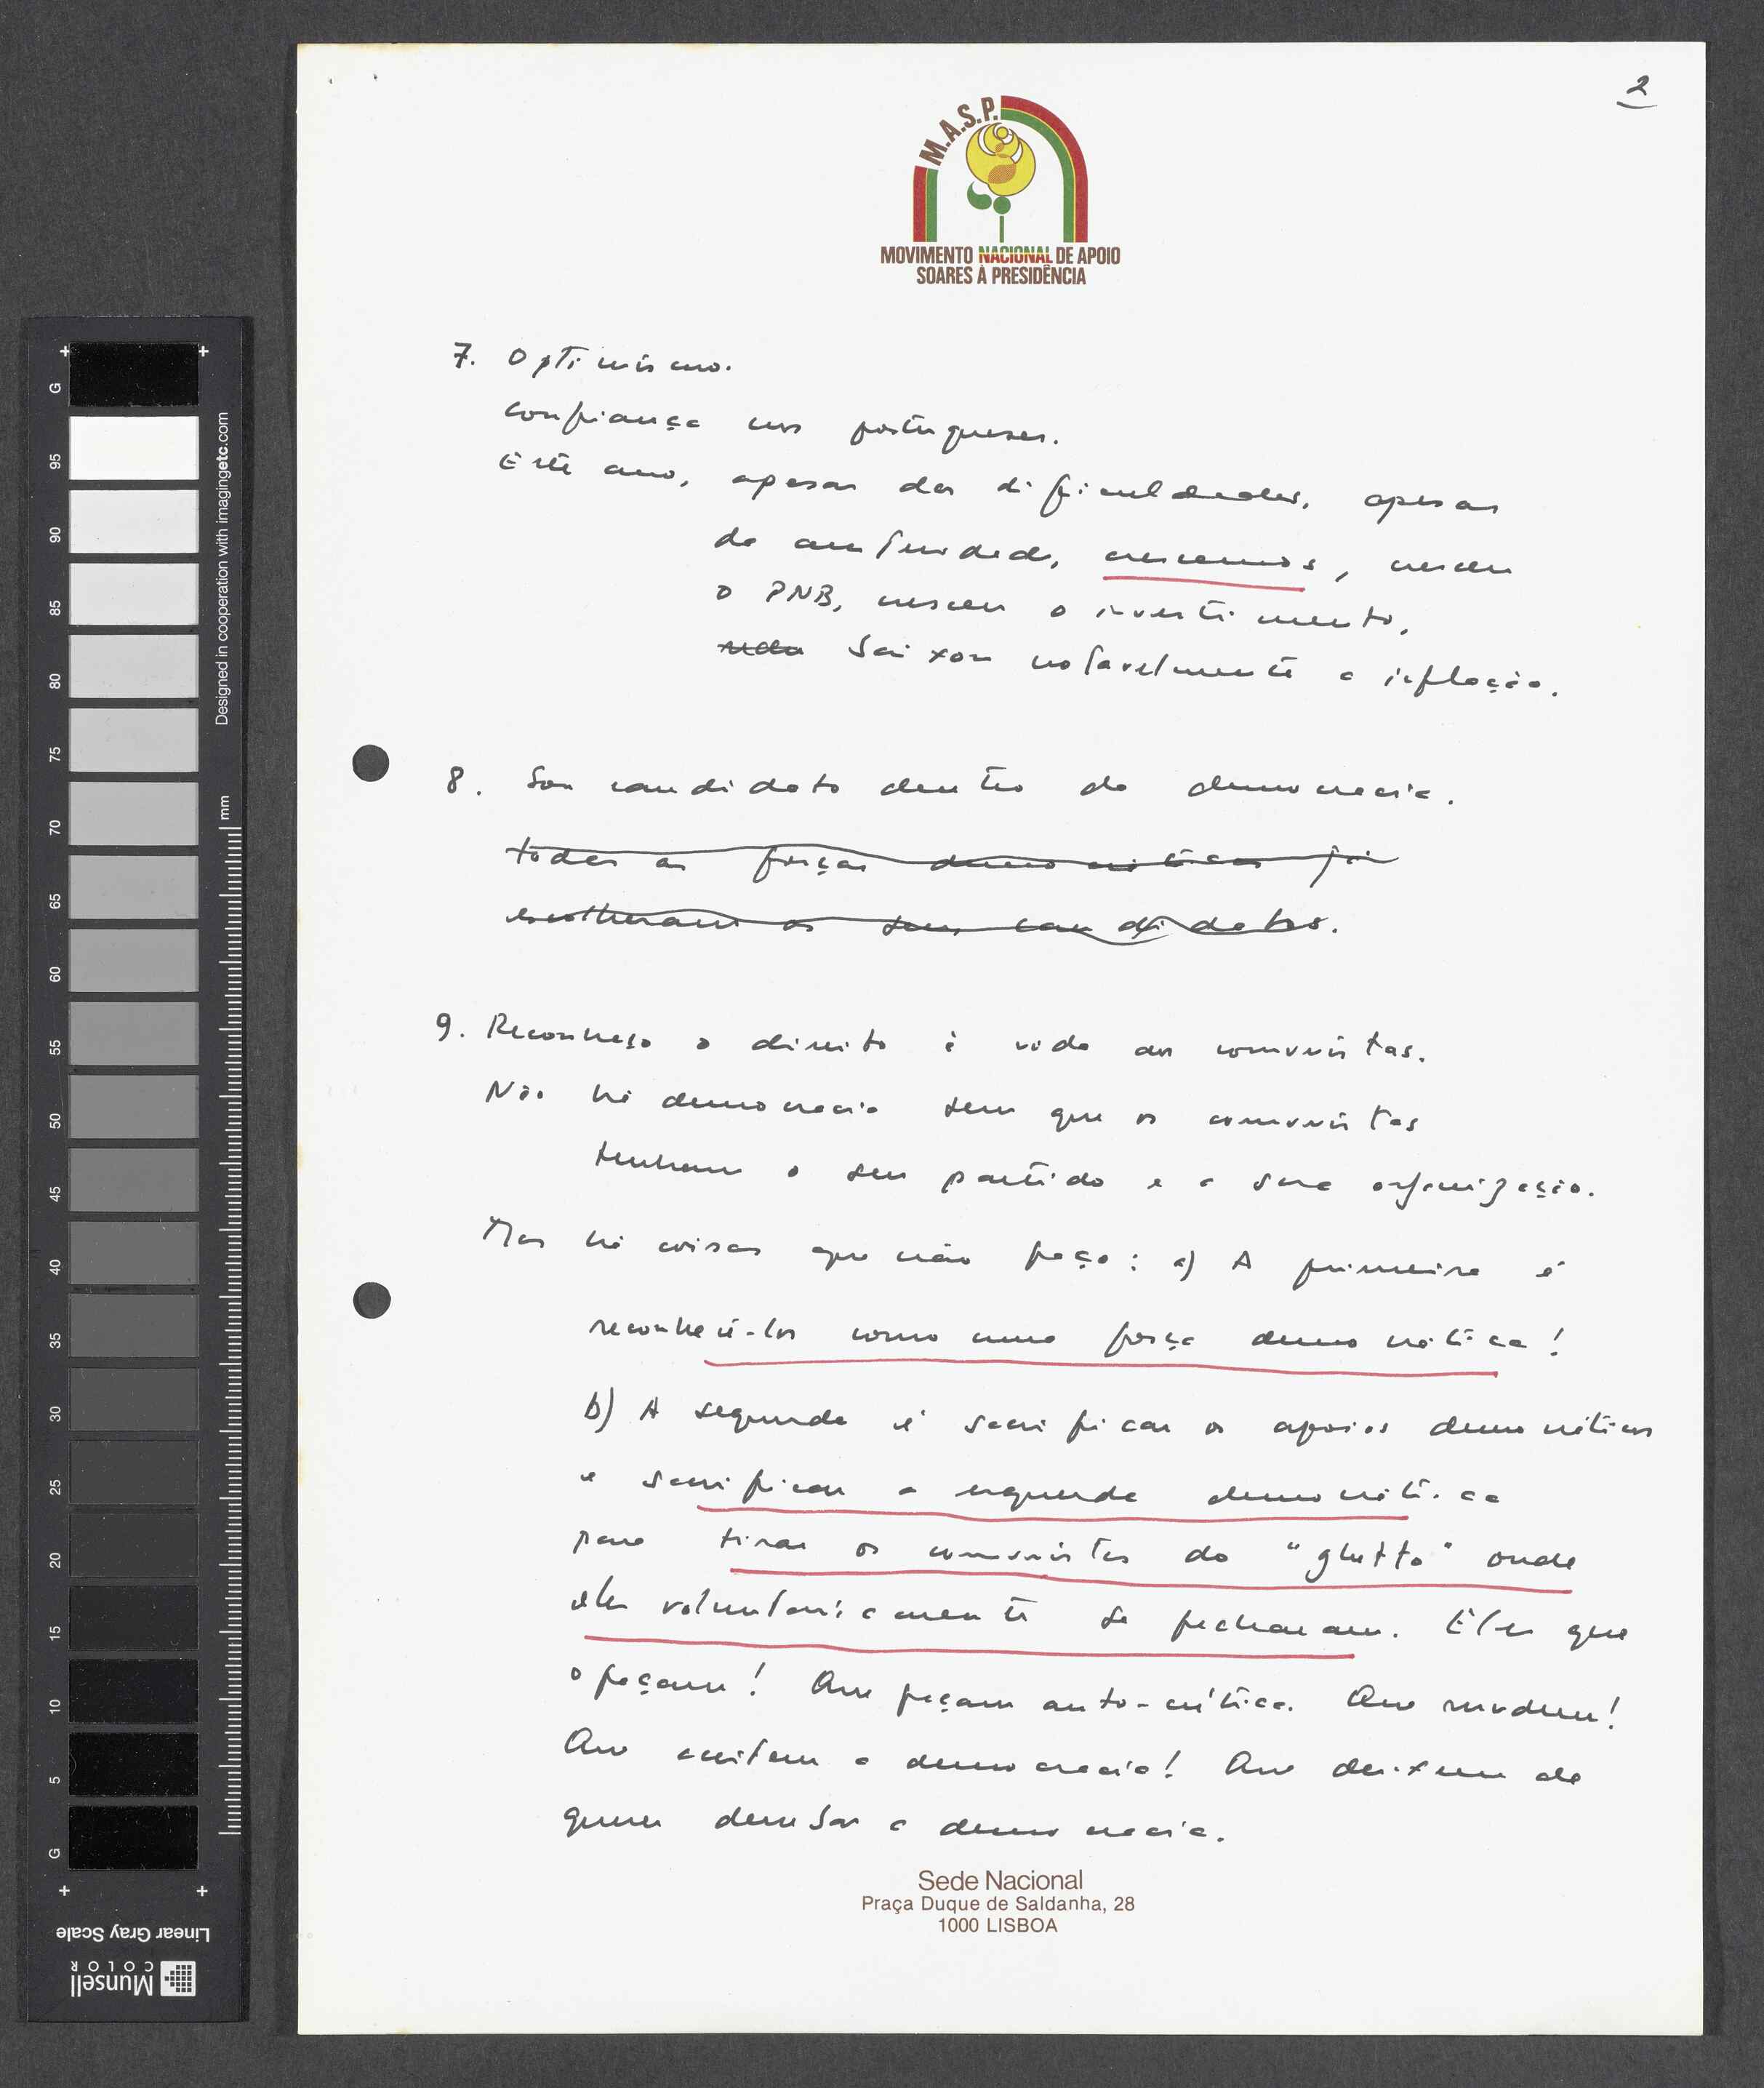 2
M.A.S.P.
MOVIMENTO NACIONAL DE APOIO
SOARES À PRESIDÊNCIA
7. Optimismo.
Confiança nos portugueses.
Este ano, apesar das dificuldades, apesar
da austeridade, crescemos, cresceu
o PNB, cresceu o investimento,
baixou notavelmente a inflação.
8. Sou candidato dentro da democracia.
todas as forças democráticas já
escolheram os seus candidatos.
9. Reconheço o direito à vida aos comunistas.
Não há democracia sem que os comunistas
tenham o seu partido e a sua organização.
Mas há coisas que não faço: a) A primeira é
reconhecê-los como uma força democrática!
b) A segunda é sacrificar os apoios democráticos
e sacrificar a esquerda democrática
para tirar os comunistas do "ghetto" onde
eles voluntariamente se fecharam. Eles que
o façam! Que façam auto-crítica. Que mudem!
Que aceitem a democracia! Que deixem de
querer derrubar a democracia.
Sede Nacional
Praça Duque de Saldanha, 28
1000 LISBOA
+ +
G
95
90
85
80
75
70
65
60
55
50
45
40
35
30
25
20
15
10
5
G
+ +
Designed in cooperation with imagingetc.com
mm
Linear Gray Scale
Munsell
COLOR